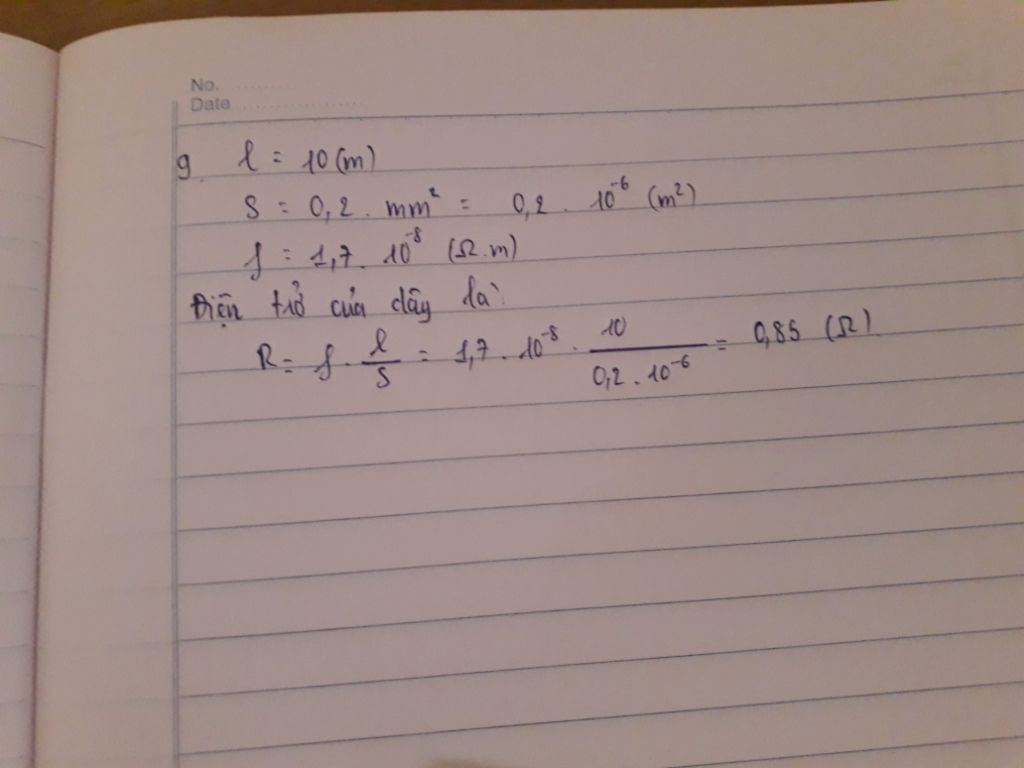 No. ..........
Date ..................
9. l = 10 (m)
S = 0,2 . mm² = 0,2 . 10⁻⁶ (m²)
ρ = 1,7 . 10⁻⁸ (Ω.m)
Điện trở của dây là:
R = ρ . l/S = 1,7 . 10⁻⁸ . 10/(0,2 . 10⁻⁶) = 0,85 (Ω)